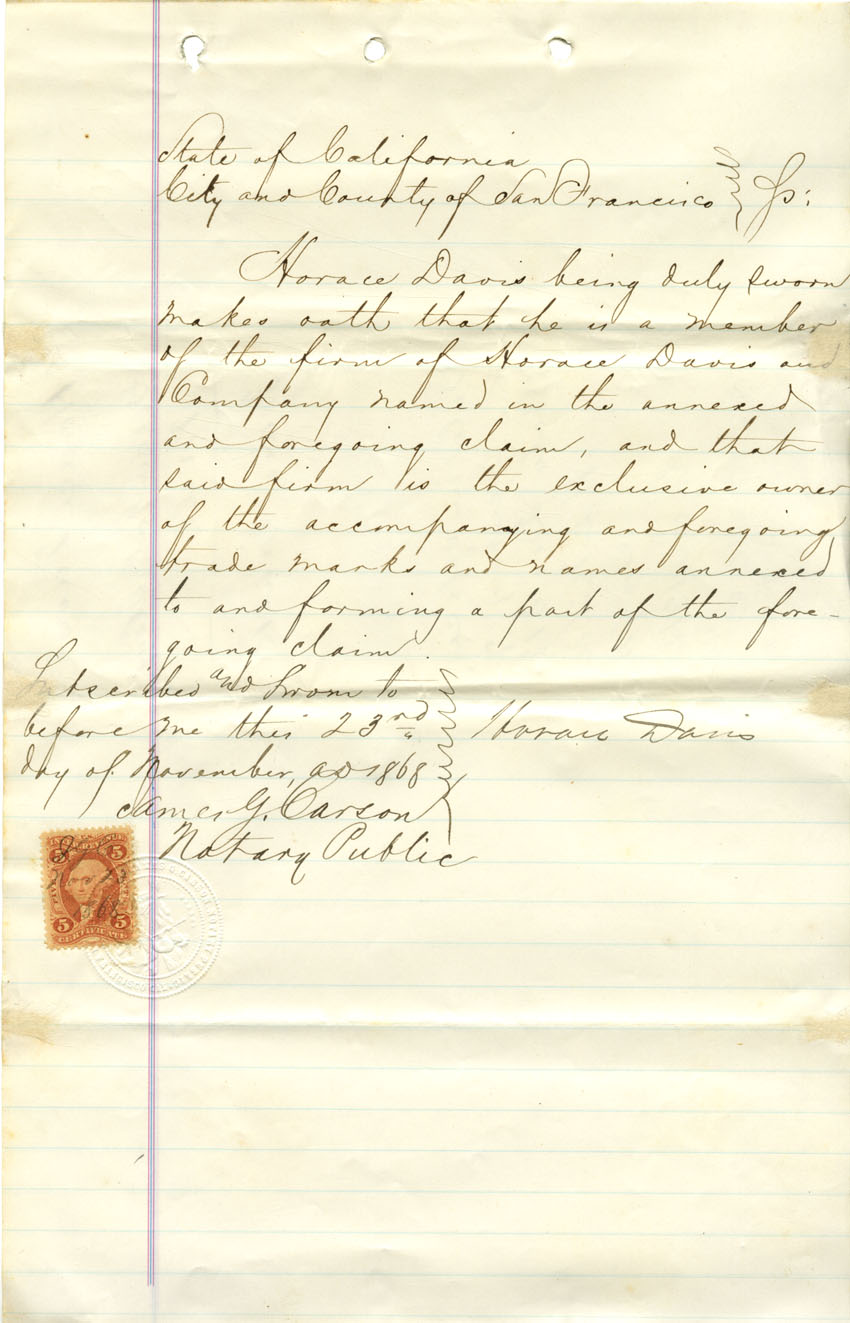 State of California
City and County of San Francisco } Ss:
Horace Davis being duly sworn
makes oath that he is a member
of the firm of Horace Davis and
Company named in the annexed
and foregoing claim, and that
said firm is the exclusive owner
of the accompanying and foregoing
trade marks and names annexed
to and forming a part of the fore-
going claim.
Subscribed and Sworn to
before me this 23rd
day of November, AD 1868
Horace Davis
James G. Carson
Notary Public
5 5
1868
5 5
CERTIFICATE